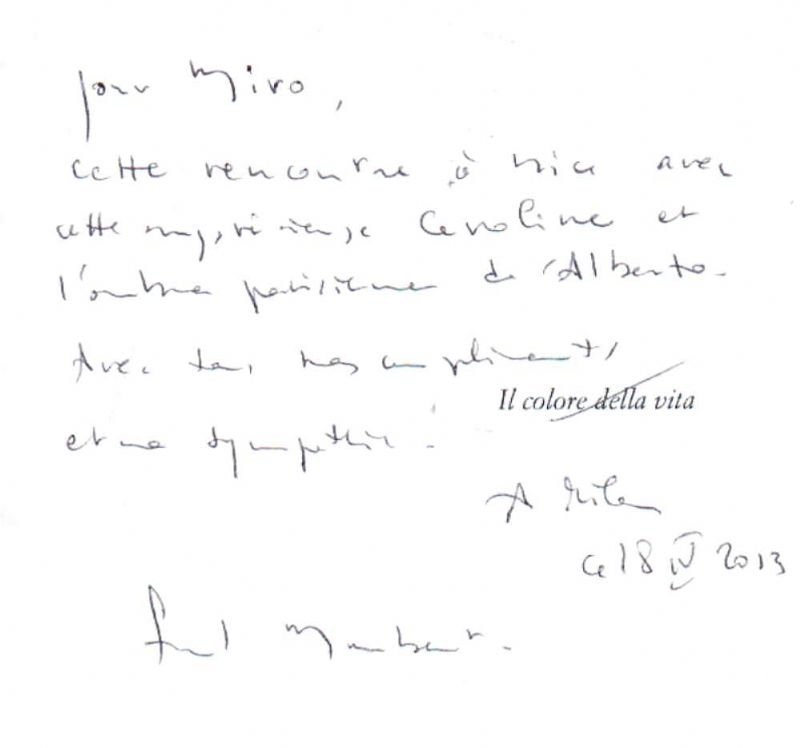 pour Miro,
cette rencontre à Nice avec
cette mystérieuse Caroline et
l'ombre parisienne de l'Alberto.
Avec tous mes compliments,
Il colore della vita
et ma sympathie.
A Milan
ce 18 IV 2013
Franck Maubert.